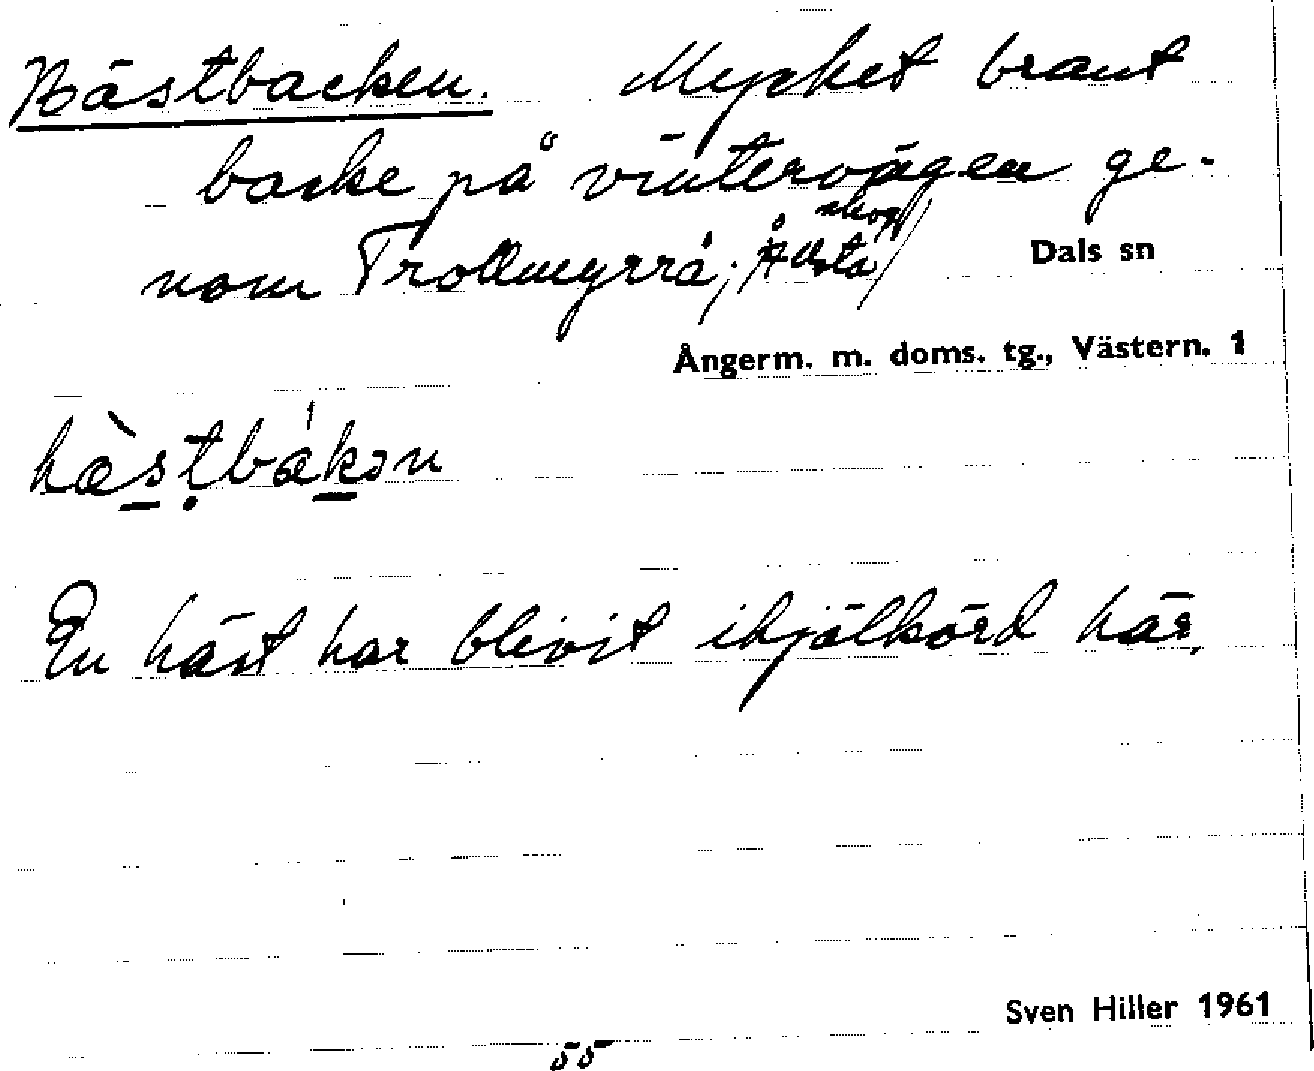 Hästbacken. Mycket brant
backe på vintervägen ge-
nom Trollmyrrå; /Ållsta skog/
Dals sn
Ångerm. m. doms. tg., Västern. 1
hæ̀stbákən
En häst har blivit ihjälkörd här.
Sven Hiller 1961
55